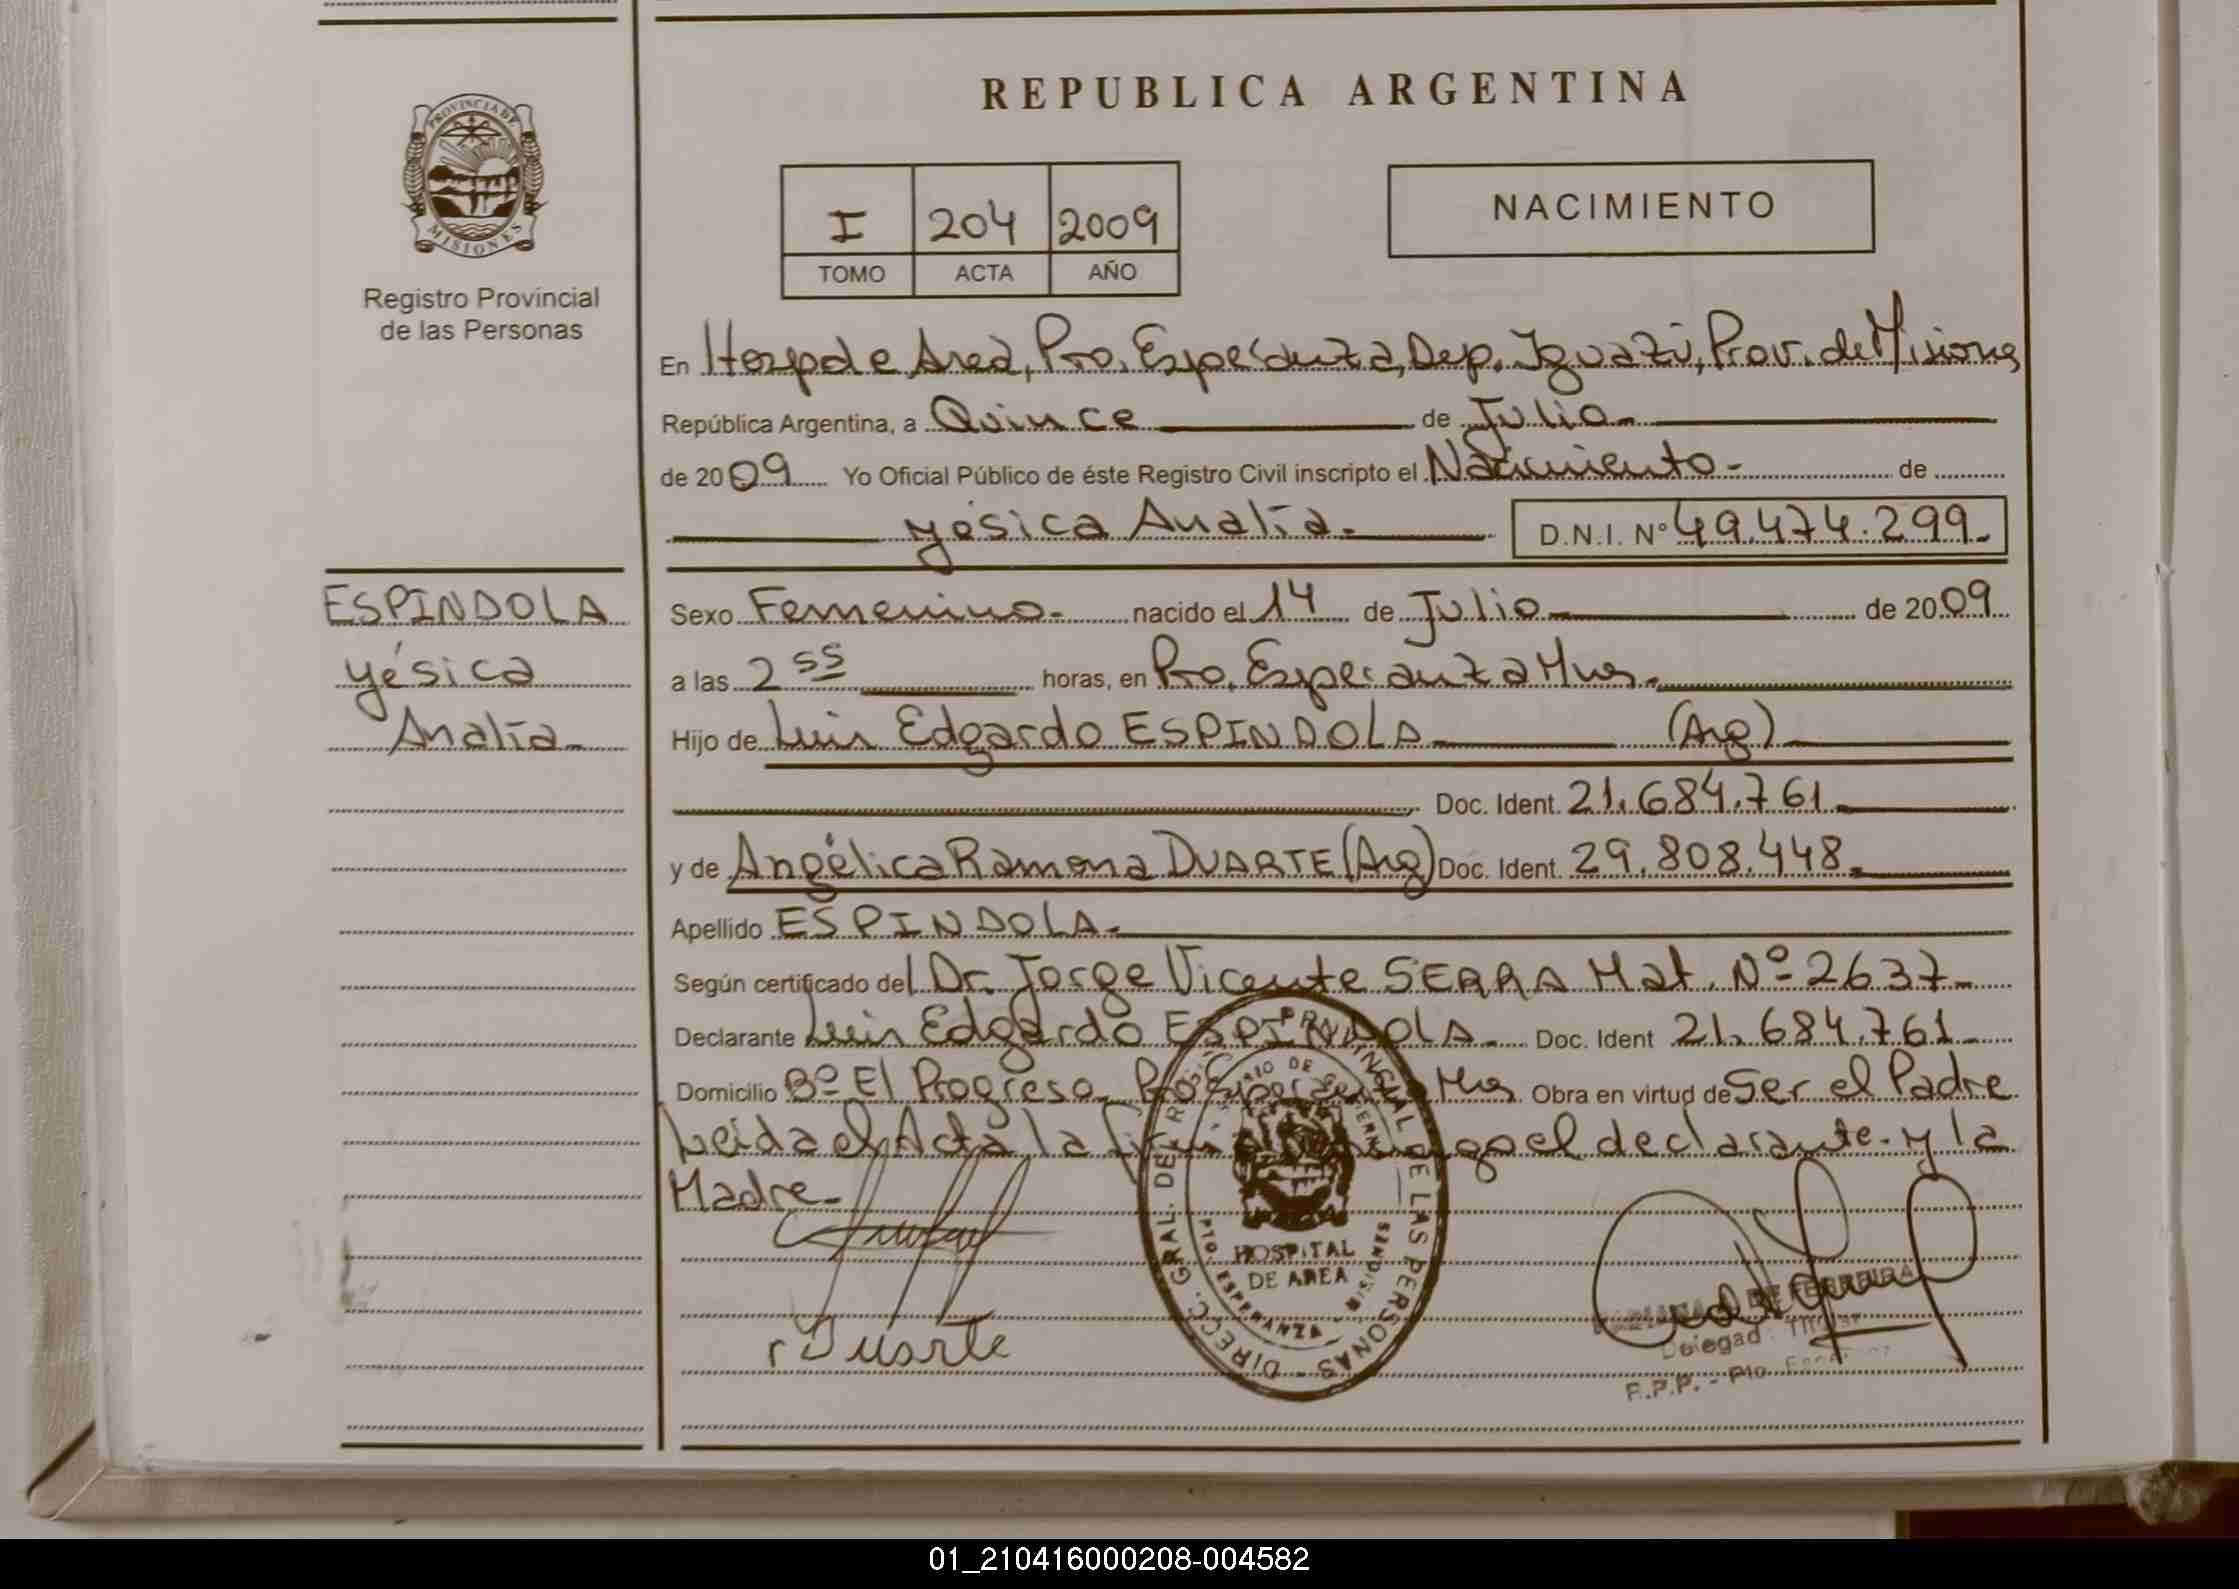 REPUBLICA ARGENTINA
PROVINCIA DE
MISIONES
Registro Provincial
de las Personas
I 204 2009
TOMO ACTA AÑO
NACIMIENTO
En Hosp de Area, Pto. Esperanza, Dep. Iguazú, Prov. de Misiones
República Argentina, a Quince de Julio
de 2009 Yo Oficial Público de éste Registro Civil inscripto el Nacimiento - de
Yésica Analía. D.N.I. Nº 49.474.299.
ESPINDOLA
Yésica
Analía
Sexo Femenino. nacido el 14 de Julio de 2009
a las 2 55 horas, en Pto. Esperanza Mnes.
Hijo de Luis Edgardo ESPINDOLA (Arg)
Doc. Ident. 21.684.761
y de Angélica Ramona DUARTE (Arg) Doc. Ident. 29.808.448.
Apellido ESPINDOLA.
Según certificado del Dr. Jorge Vicente SERRA Mat. Nº 2637
Declarante Luis Edgardo ESPINDOLA. Doc. Ident 21.684.761
Domicilio Bº El Progreso, Pto Esperanza Mnes Obra en virtud de Ser el Padre
Leida el Acta la firma conmigo el declarante y la
Madre
Duarte
DIRECC. GRAL. DEL REGISTRO PROVINCIAL DE LAS PERSONAS
MINISTERIO DE GOBIERNO
HOSPITAL
DE AREA
PTO. ESPERANZA - MISIONES
DE FERREIRA
Delegad Titular
R.P.P. - Pto.
01_210416000208-004582